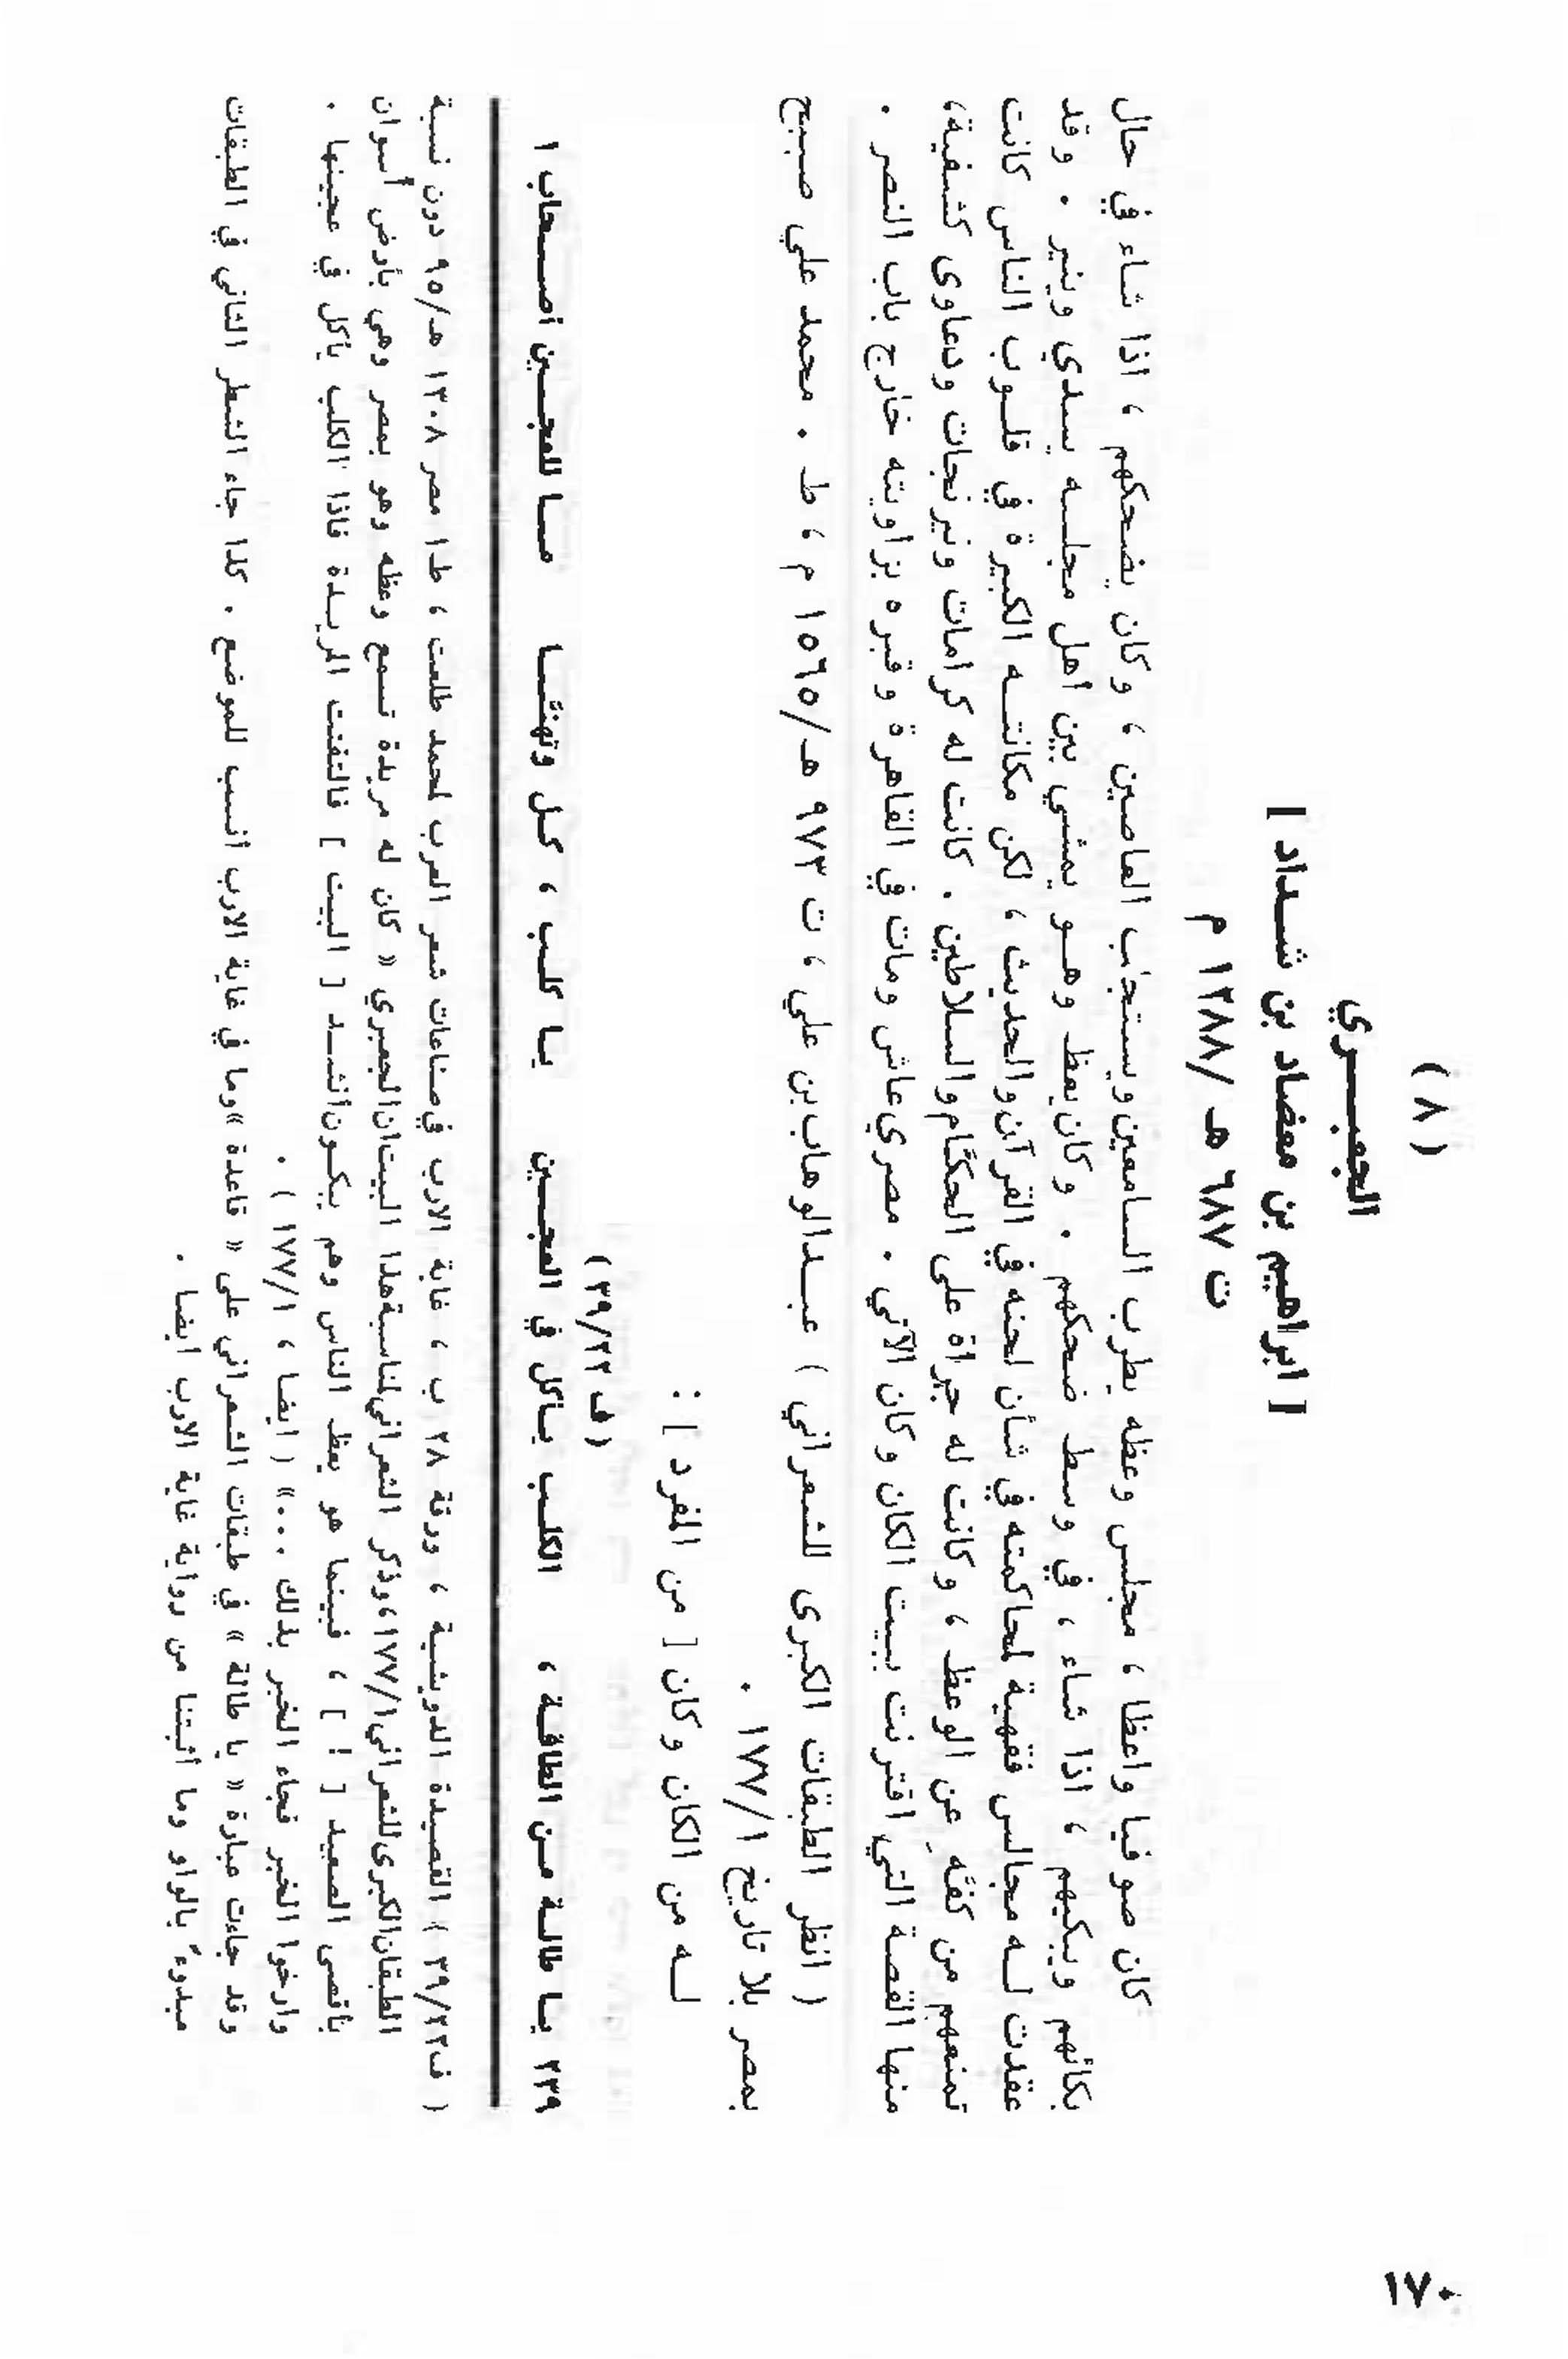 ( ٨ )
الجعبـــري
[ ابراهيم بن معضاد بن شــداد ]
ت ٦٨٧ هـ /١٢٨٨ م
كان صوفيا واعظا ، مجلس وعظه يطرب السامعين ويستجلب العاصين ، وكان يضحكهم ، اذا شاء في حال
بكائهم ويبكيهم ، اذا شاء ، في وسط ضحكهم . وكان يعظ وهــو يمشي بين أهل مجلســه يسدي وينير . وقد
عقدت لــه مجالس فقهية لمحاكمته في شأن لحنه في القرآن والحديث ، لكن مكانتــه الكبيرة في قلــوب الناس كانت
تمنعهم من كفّه عن الوعظ ، وكانت له جرأة على الحكّام والسلاطين . كانت له كرامات ونيرنجات ودعاوى كشفية،
منها القصة التي اقترنت ببيت الكان وكان الآتي . مصري عاش ومات في القاهرة وقبره بزاويته خارج باب النصر .
( انظر الطبقات الكبرى للشعراني ( عبــدالوهاب بن علي ، ت ٩٧٣ هـ/١٥٦٥ م ، ط . محمد علي صبيح
بمصر بلا تاريخ ١/١٧٧ .
لــه من الكان وكان [ من المفرد ] :
( ف ٣٩/٢٢ )
٢٣٩ يــا طالــة مــن الطاقــة ، الكلــب يــاكل في العجــين يــا كلــب ، كــل وتهنّــا مــا للعجــين أصــحاب ١
( ف٣٩/٢٢ ) القصيدة الدويشية ، ورقة ٢٨ ب ، غاية الارب في صناعات شعر العرب لمحمد طلعت ، ط١ مصر ١٣٠٨ هـ/٩٥ دون نسبة
الطبقات الكبرى للشعراني ١/١٧٧، وذكر الشعراني لمناسبة هذا البيت ان الجعبري « كان له مريدة تسمع وعظه وهو بمصر وهي بأرض أسوان
بأقصى الصعيد [ ! ] ، فبينما هو يعظ الناس وهم يبكــون أنشــد [ البيت ] فالتفتت المريــدة فاذا الكلب يأكل في عجينها .
وارخوا الخبر فجاء الخبر بذلك ...» ( ايضا ، ١/١٧٧ ) .
وقد جاءت عبارة « يا طالة » في طبقات الشعراني على « قاعدة » وما في غاية الارب أنسب للموضع . كذا جاء الشطر الثاني في الطبقات
مبدوءً بالواو وما أثبتنا من رواية غاية الارب أيضا .
١٧٠